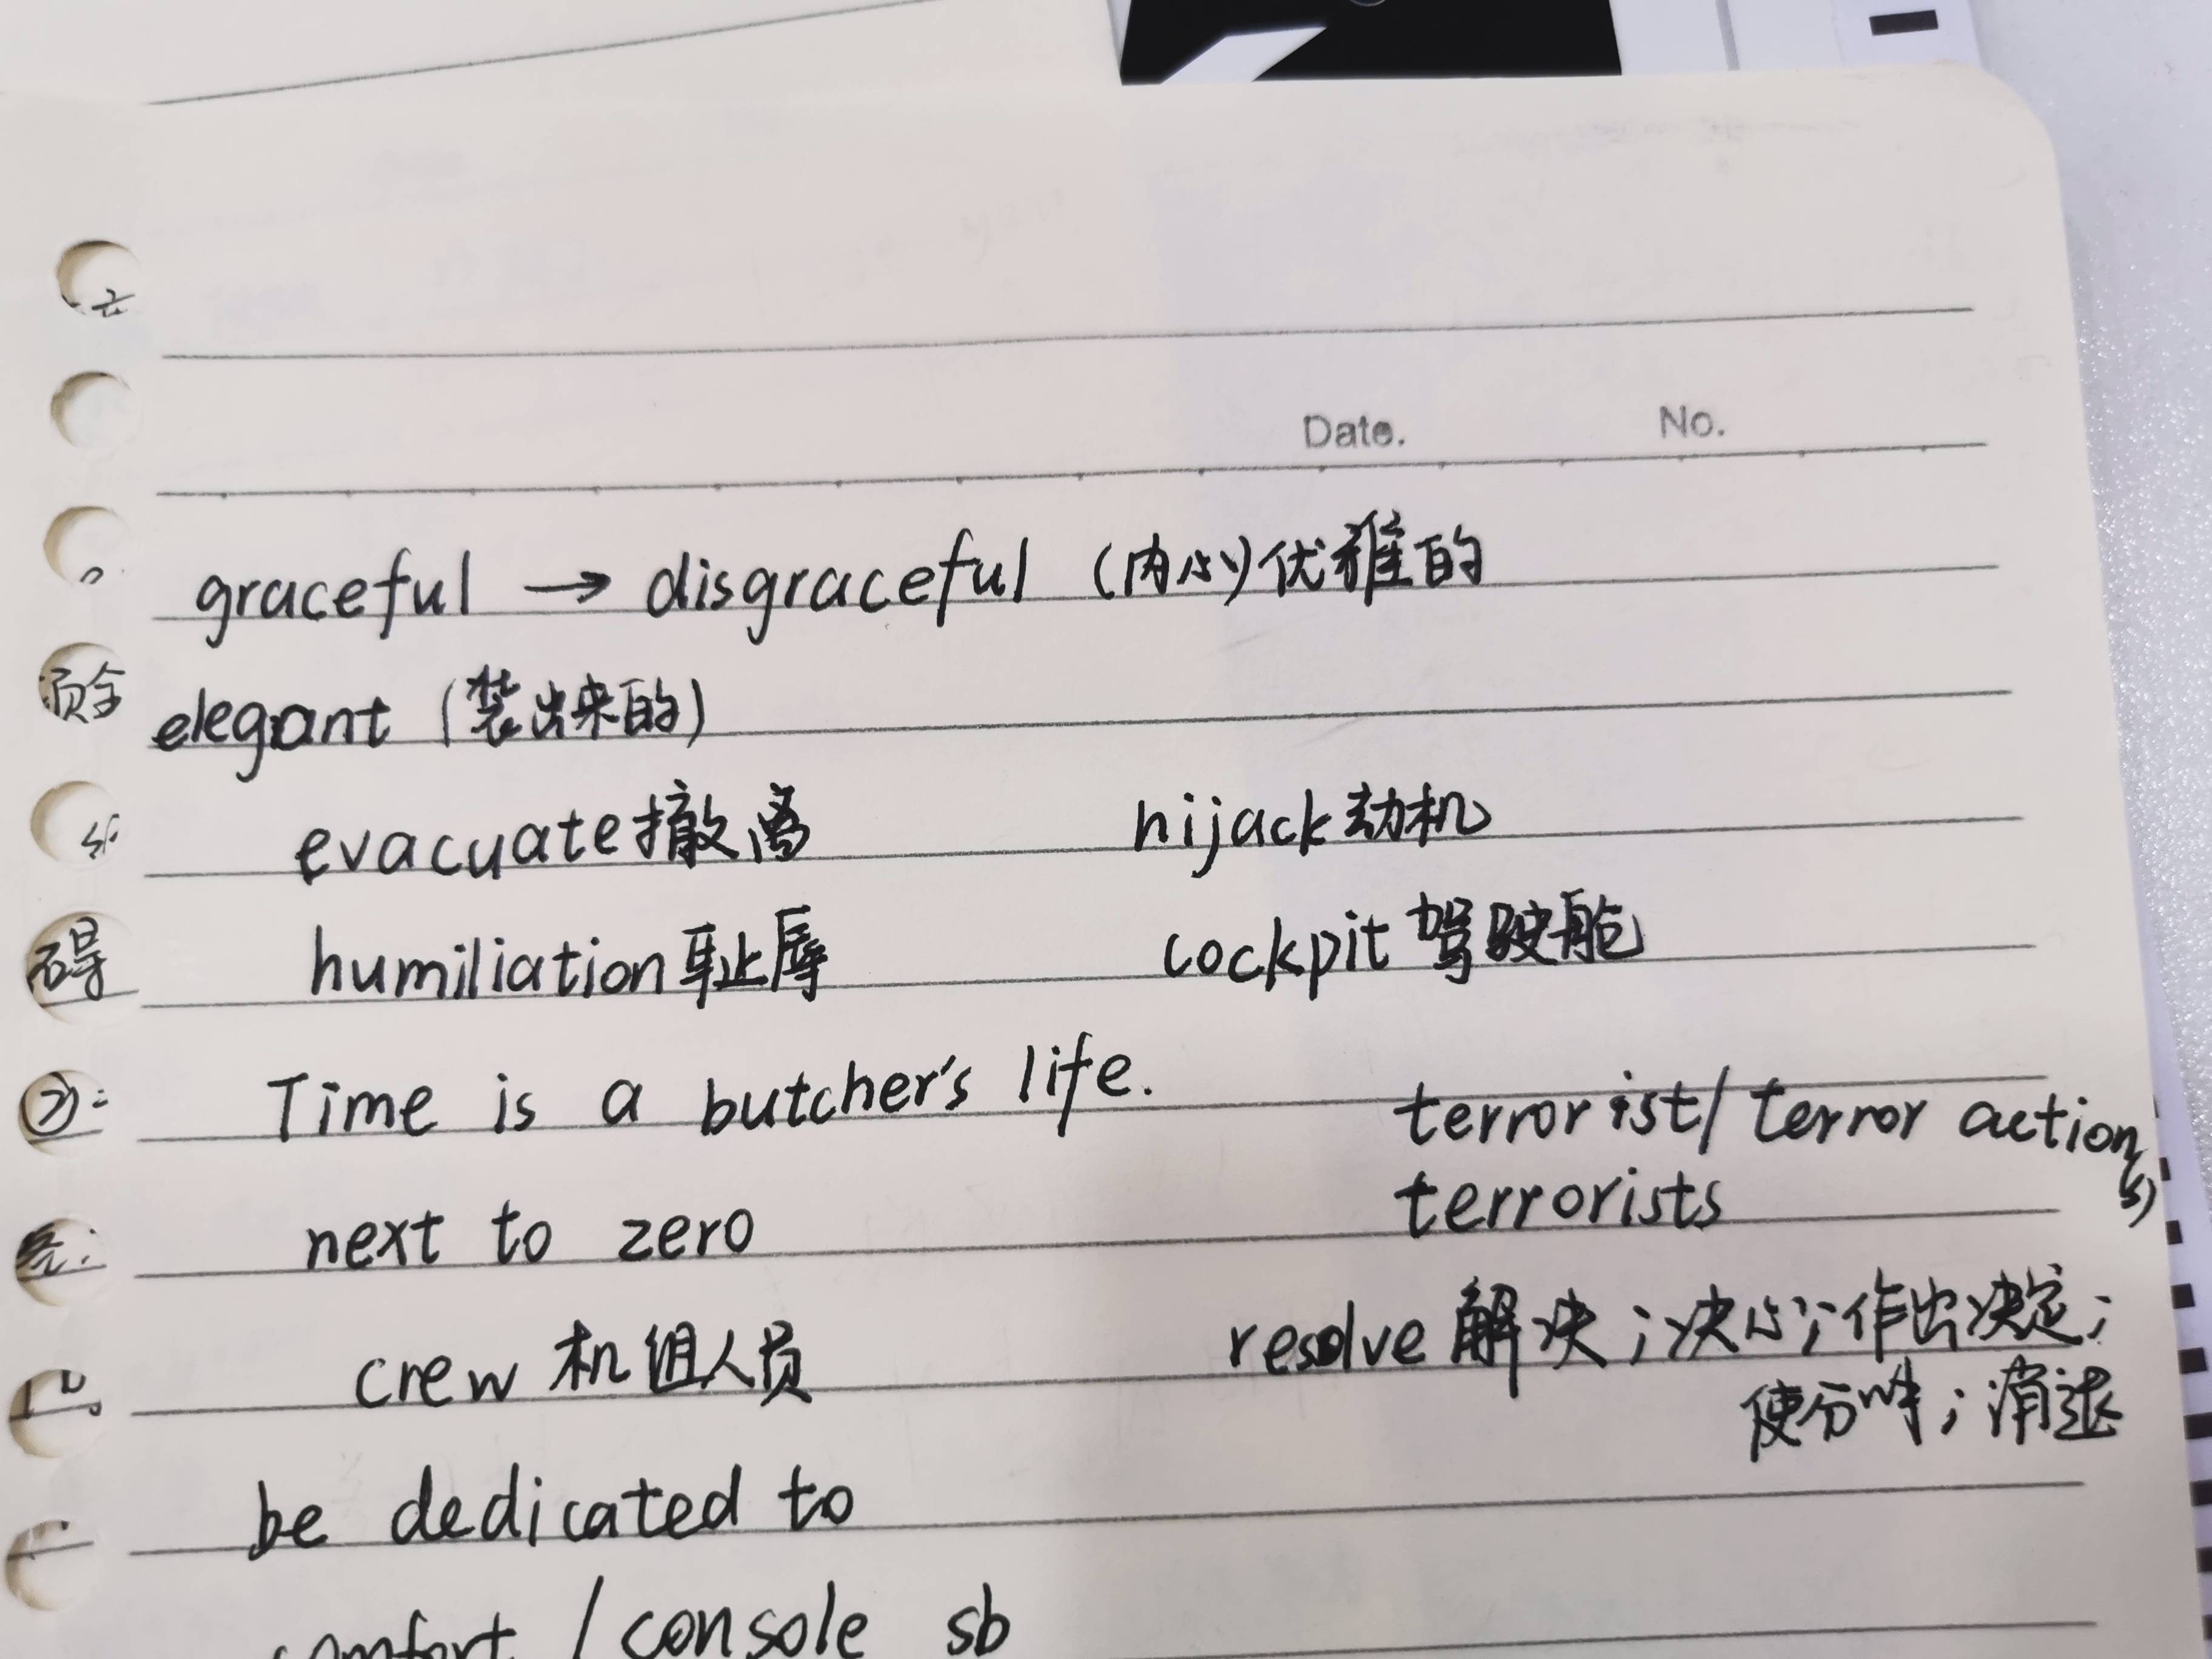 Date. No.
graceful → disgraceful (内心)优雅的
elegant (装出来的)
evacuate撤离 hijack劫机
humiliation耻辱 cockpit 驾驶舱
Time is a butcher's life.
terrorist/terror action(s)
next to zero
terrorists
crew 机组人员
resolve 解决;决心;作出决定;
使分解;消退
be dedicated to
comfort / console sb